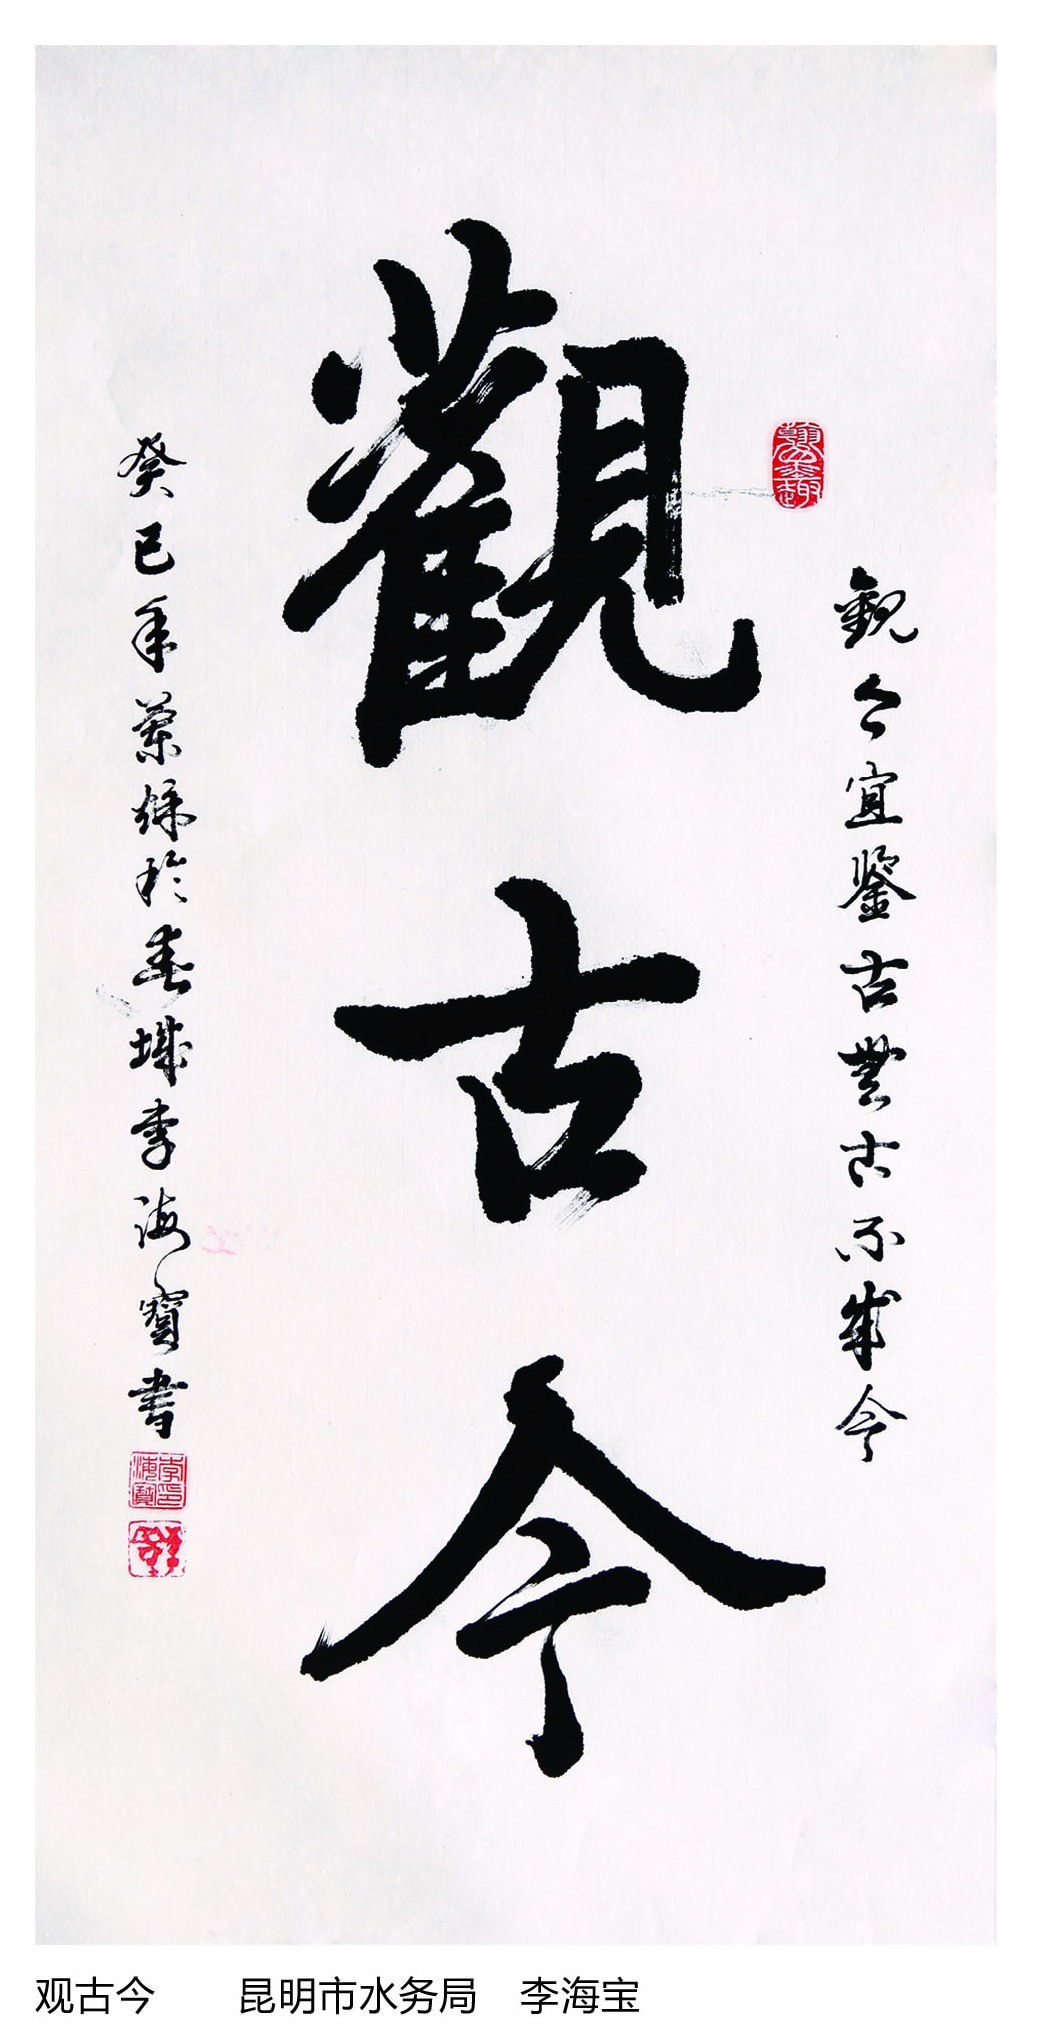 觀今宜鑒古無古不成今
翰墨趣
觀古今
癸巳年於春城李海寶書
李印海寶
观古今 昆明市水务局 李海宝